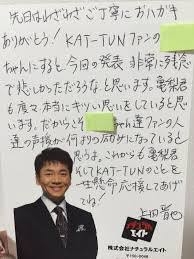 先日はわざわざご丁寧におハガキ
ありがとう！KAT-TUNファンの
ちゃんにすると今回の発表非常に残念
で悲しかっただろうなと思います。亀梨君
も度々本当にキツい思いをしていると思
います。だからこそ ちゃん達ファンの人
達の声援が何よりの励みになっていると
思うよ。これからも亀梨君
そしてKAT-TUNのことを
生懸命応援してあげ
てね！
上田晋也
ナチュラルエイト
株式会社ナチュラルエイト